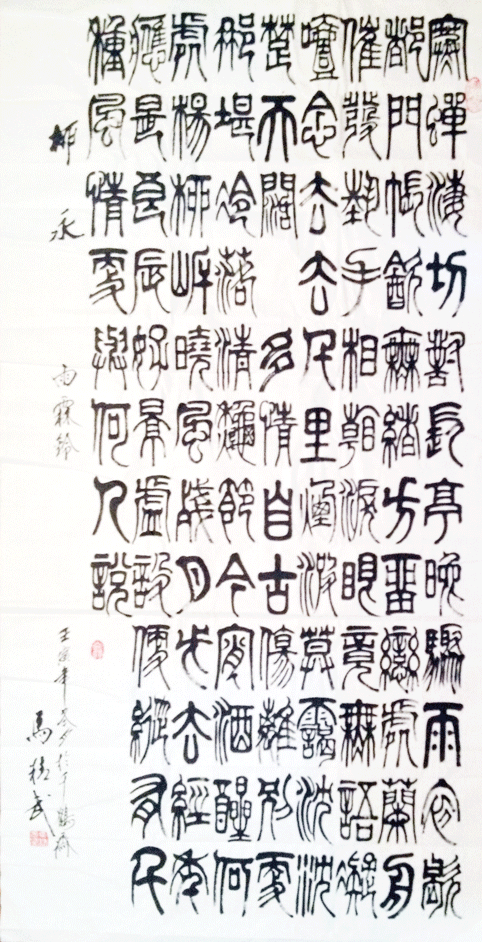 寒蟬淒切對長亭晚驟雨初歇
都門帳飲無緒方留戀處蘭舟
催發執手相看淚眼竟無語凝
噎念去去千里煙波暮靄沈沈
楚天闊 多情自古傷離別更
那堪冷落清秋節今宵酒醒何
處楊柳岸曉風殘月此去經年
應是良辰好景虛設便縱有千
種風情更與何人說
柳永 雨霖鈴